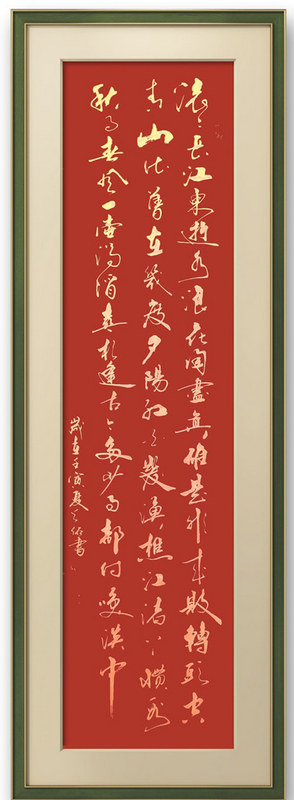 滚々長江東逝水浪花淘盡英雄是非成敗轉頭空
青山依舊在幾度夕陽紅白髮漁樵江渚上慣看
秋月春風一壺濁酒喜相逢古今多少事都付笑談中
歲在壬寅夏書